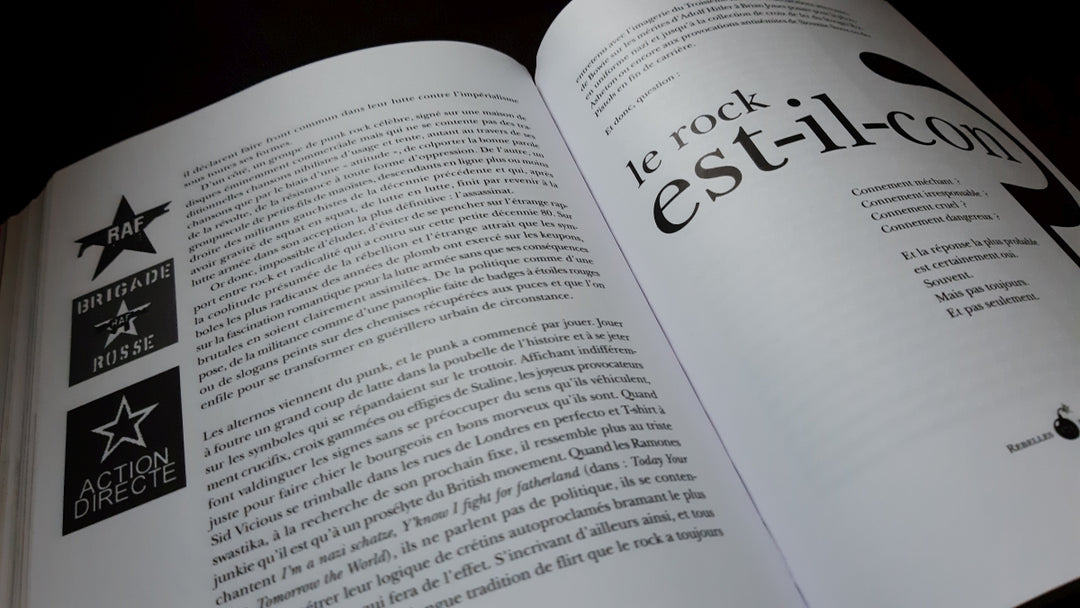 RAF
BRIGADE
RAF
ROSSE
ACTION
DIRECTE
il déclarent faire front commun dans leur lutte contre l'impérialisme
sous toutes ses formes.
D'un côté, un groupe de punk rock célèbre, signé sur une maison de
disque éminemment commerciale mais qui ne se contente pas des tra-
ditionnelles chansons d'usage et tente, autant au travers de ses
chansons que par le biais d'une « attitude », de colporter la bonne parole
de la révolte, de la résistance à toute forme d'oppression. De l'autre, un
groupuscule de petits-fils de maoïstes, descendants en ligne plus ou moins
droite des militants gauchistes de la décennie précédente et qui, après
avoir gravité de squat en squat, de lutte en lutte, finit par revenir à la
lutte armée dans son acception la plus définitive : l'assassinat.
Or donc, impossible d'éluder, d'éviter de se pencher sur l'étrange rap-
port entre rock et radicalité qui a couru sur cette petite décennie 80. Sur
la coolitude présumée de la rébellion et l'étrange attrait que les sym-
boles les plus radicaux des années de plomb ont exercé sur les keupons,
sur la fascination romantique pour la lutte armée sans que ses conséquences
brutales en soient clairement assimilées. De la politique comme d'une
pose, de la militance comme d'une panoplie faite de badges à étoiles rouges
ou de slogans peints sur des chemises récupérées aux puces et que l'on
enfile pour se transformer en guérillero urbain de circonstance.
Les alternos viennent du punk, et le punk a commencé par jouer. Jouer
à foutre un grand coup de latte dans la poubelle de l'histoire et à se jeter
sur les symboles qui se répandaient sur le trottoir. Affichant indifférem-
ment crucifix, croix gammées ou effigies de Staline, les joyeux provocateurs
font valdinguer les signes sans se préoccuper du sens qu'ils véhiculent,
juste pour faire chier le bourgeois en bons morveux qu'ils sont. Quand
Sid Vicious se trimballe dans les rues de Londres en perfecto et T-shirt à
swastika, à la recherche de son prochain fixe, il ressemble plus au triste
junkie qu'il est qu'à un prosélyte du British movement. Quand les Ramones
chantent I'm a nazi schatze, Y'know I fight for fatherland (dans : Today Your
Tomorrow the World), ils ne parlent pas de politique, ils se conten-
leur logique de crétins autoproclamés bramant le plus
qui fera de l'effet. S'incrivant d'ailleurs ainsi, et tous
tradition de flirt que le rock a toujours
entretenu avec l'imagerie du Troisième
de Bowie sur les mérites d'Adolf Hitler à Brian Jones
en uniforme nazi et jusqu'à la collection de croix de fer
Asheton ou encore aux provocations antisémites de
Pistols en fin de carrière.
Et donc, question :
le rock
est-il-con
Connement méchant ?
Connement irresponsable ?
Connement cruel ?
Connement dangereux ?
Et la réponse la plus probable
est certainement oui.
Souvent.
Mais pas toujours.
Et pas seulement.
REBELLES